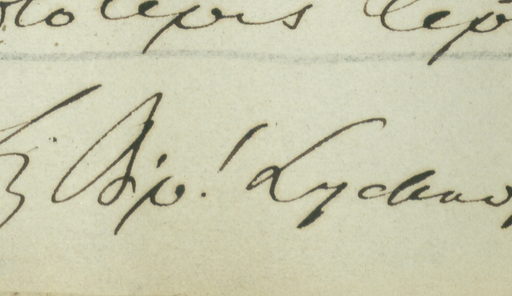 tolepis lep
Bip! Lychno